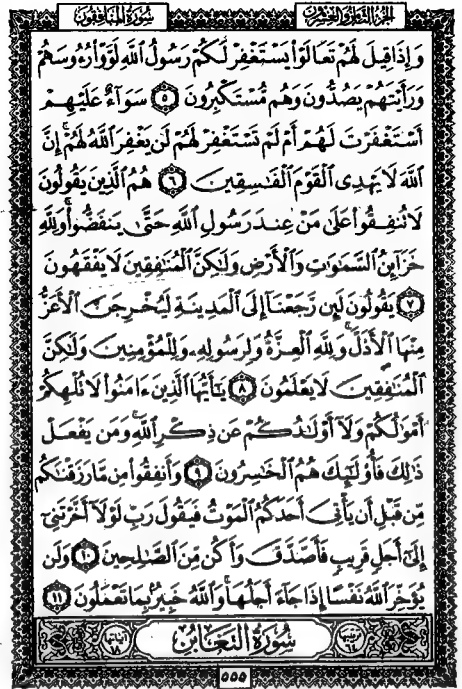 سُورَةُ المُنَافِقُونَ
الجُزْءُ الثَّامِنُ وَالعِشْرُونَ
وَإِذَا قِيلَ لَهُمْ تَعَالَوْا۟ يَسْتَغْفِرْ لَكُمْ رَسُولُ ٱللَّهِ لَوَّوْا۟ رُءُوسَهُمْ
وَرَأَيْتَهُمْ يَصُدُّونَ وَهُم مُّسْتَكْبِرُونَ ٥ سَوَآءٌ عَلَيْهِمْ
أَسْتَغْفَرْتَ لَهُمْ أَمْ لَمْ تَسْتَغْفِرْ لَهُمْ لَن يَغْفِرَ ٱللَّهُ لَهُمْ ۚ إِنَّ
ٱللَّهَ لَا يَهْدِى ٱلْقَوْمَ ٱلْفَـٰسِقِينَ ٦ هُمُ ٱلَّذِينَ يَقُولُونَ
لَا تُنفِقُوا۟ عَلَىٰ مَنْ عِندَ رَسُولِ ٱللَّهِ حَتَّىٰ يَنفَضُّوا۟ ۗ وَلِلَّهِ
خَزَآئِنُ ٱلسَّمَـٰوَٰتِ وَٱلْأَرْضِ وَلَـٰكِنَّ ٱلْمُنَـٰفِقِينَ لَا يَفْقَهُونَ
٧ يَقُولُونَ لَئِن رَّجَعْنَآ إِلَى ٱلْمَدِينَةِ لَيُخْرِجَنَّ ٱلْأَعَزُّ
مِنْهَا ٱلْأَذَلَّ ۚ وَلِلَّهِ ٱلْعِزَّةُ وَلِرَسُولِهِۦ وَلِلْمُؤْمِنِينَ وَلَـٰكِنَّ
ٱلْمُنَـٰفِقِينَ لَا يَعْلَمُونَ ٨ يَـٰٓأَيُّهَا ٱلَّذِينَ ءَامَنُوا۟ لَا تُلْهِكُمْ
أَمْوَٰلُكُمْ وَلَآ أَوْلَـٰدُكُمْ عَن ذِكْرِ ٱللَّهِ ۚ وَمَن يَفْعَلْ
ذَٰلِكَ فَأُو۟لَـٰٓئِكَ هُمُ ٱلْخَـٰسِرُونَ ٩ وَأَنفِقُوا۟ مِن مَّا رَزَقْنَـٰكُم
مِّن قَبْلِ أَن يَأْتِىَ أَحَدَكُمُ ٱلْمَوْتُ فَيَقُولَ رَبِّ لَوْلَآ أَخَّرْتَنِىٓ
إِلَىٰٓ أَجَلٍ قَرِيبٍ فَأَصَّدَّقَ وَأَكُن مِّنَ ٱلصَّـٰلِحِينَ ١٠ وَلَن
يُؤَخِّرَ ٱللَّهُ نَفْسًا إِذَا جَآءَ أَجَلُهَا ۚ وَٱللَّهُ خَبِيرٌۢ بِمَا تَعْمَلُونَ ١١
ترتيبها ٦٤ سُورَةُ التَّغَابُنِ آياتها ١٨
٥٥٥